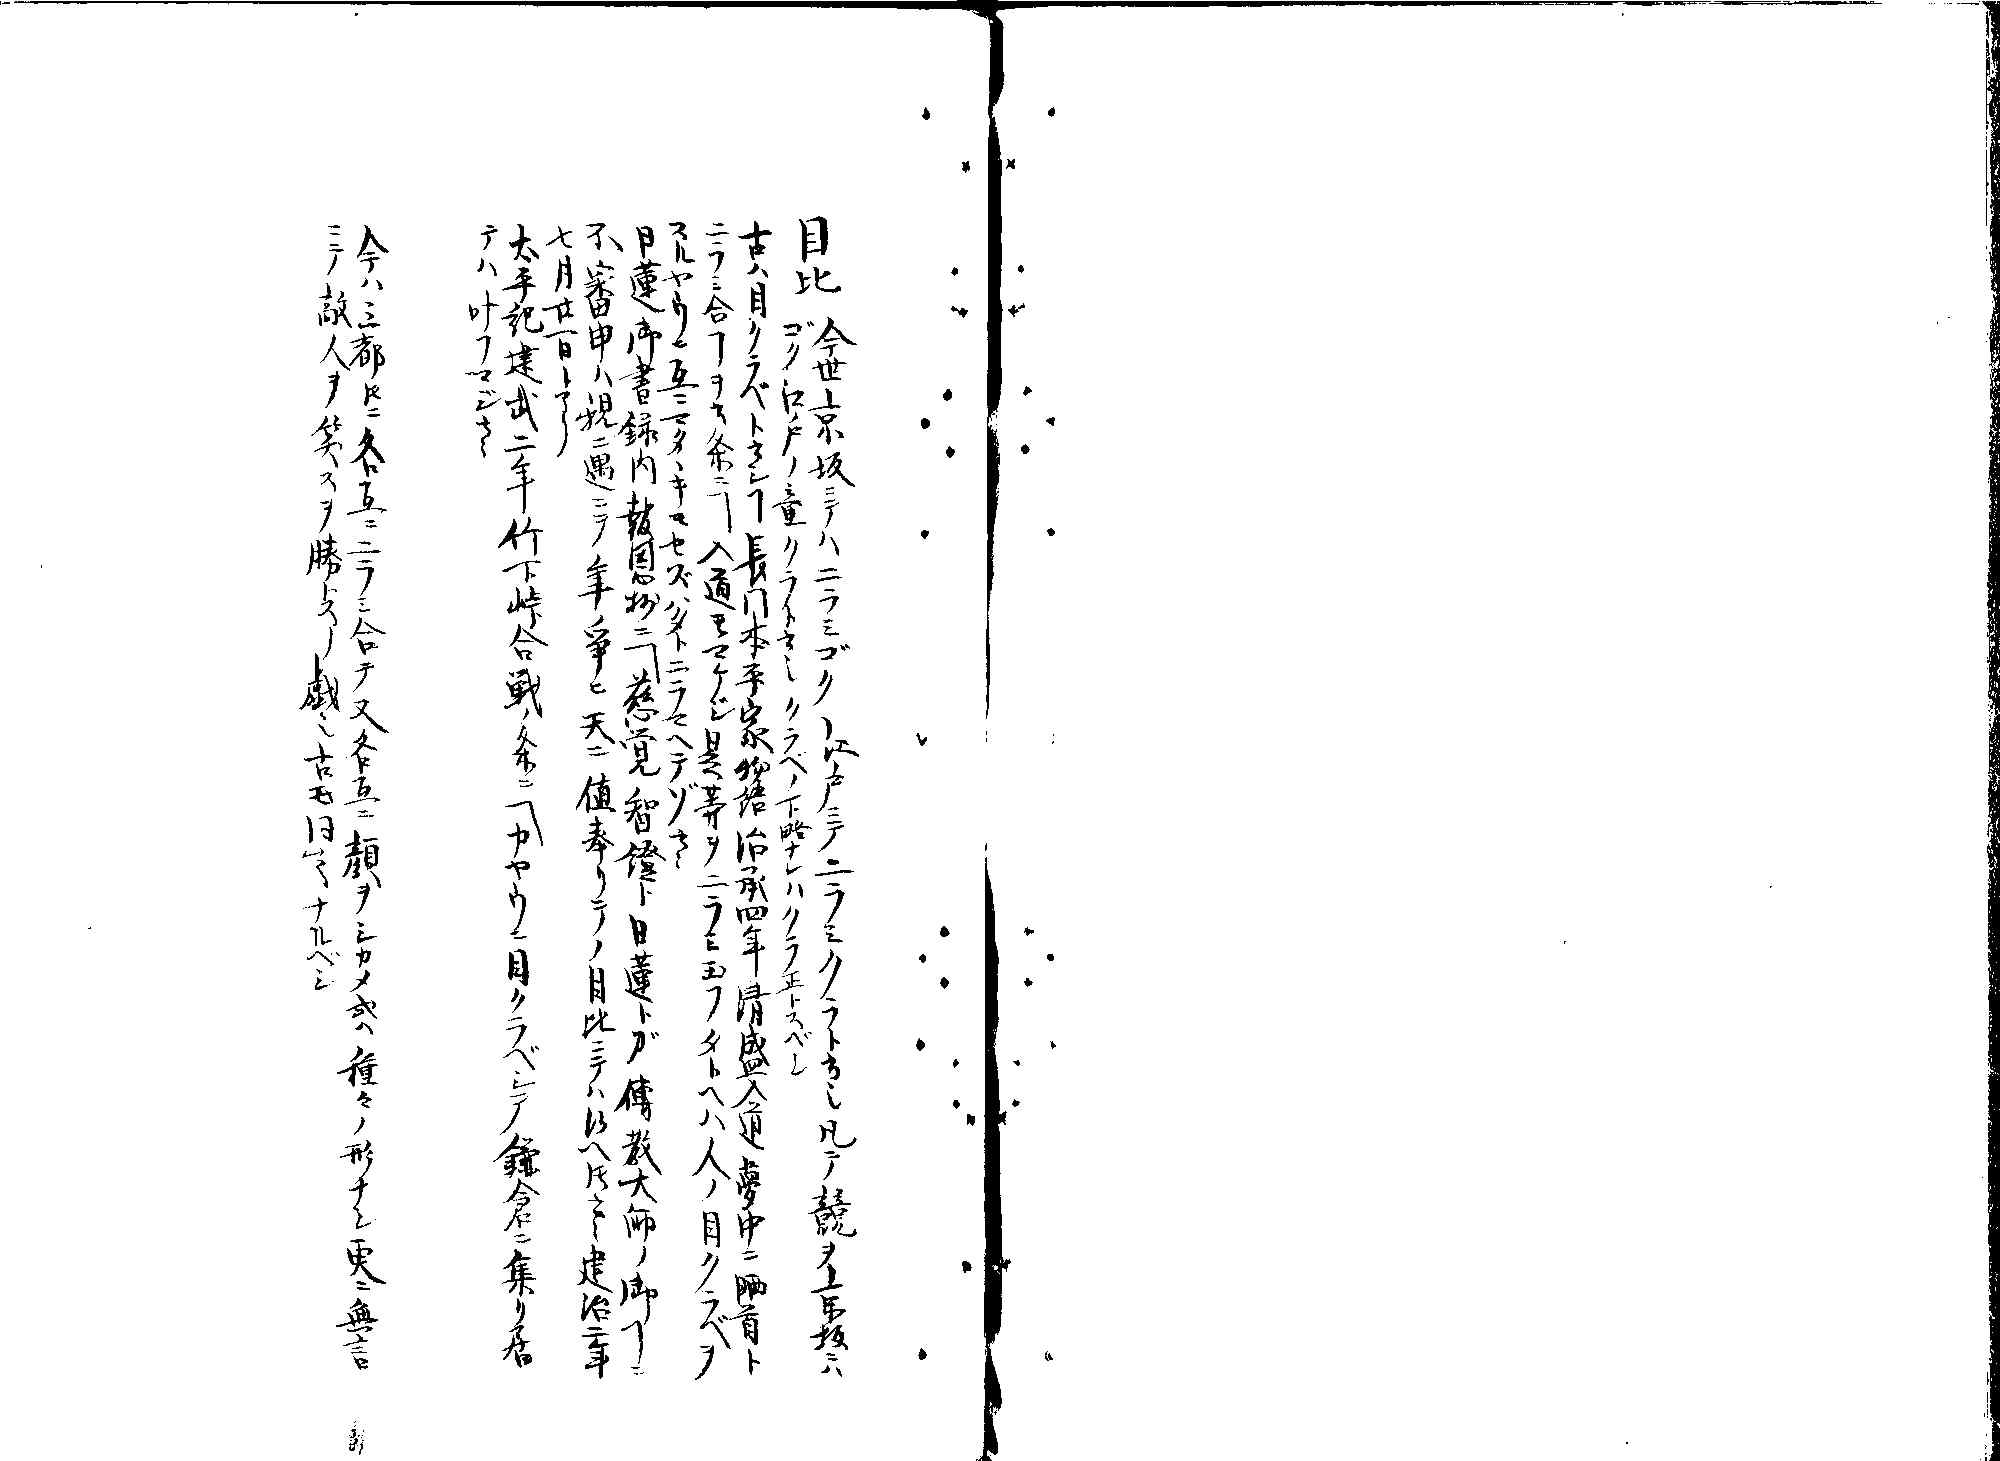 目比 今世京坂ニテハニラミゴク 江戸ニテニラミクラト云 凡テ競ヲ京坂ニハ
ゴク江戸ノ童クラト云 クラベノ下略ナレハクラ正トスベシ
古ハ目クラベト云 長門本平家物語治承四年清盛入道夢中ニ晒首ト
ニラミ合フヲ云条ニ 入道モマケジ是等ヲニラミ玉フタトヘハ人ノ目クラベヲ
スルヤウニ互ニマタヽキモセズハタトニラマヘテゾ云々
日蓮御書録内報恩抄ニ 慈覚智證ト日蓮トガ傳教大師ノ御コトニ
不審申ハ親ニ遇フテノ年ノ争ヒ天ニ値奉リテノ目比ニテハ候ヘ共云々 建治二年
七月廿一日トアリ
太平記建武二年竹下峠合戦ノ条ニ カヤウニ目クラベシテ鎌倉ニ集リ居
テハ叶フマジ云々
今ハ三都トモニ各互ニニラミ合テ又各互ニ顔ヲシカメ或ハ種々ノ形ナシ更ニ無言
ニテ敵人ヲ笑スヲ勝トスノ戯也 古モ同ナルベシ